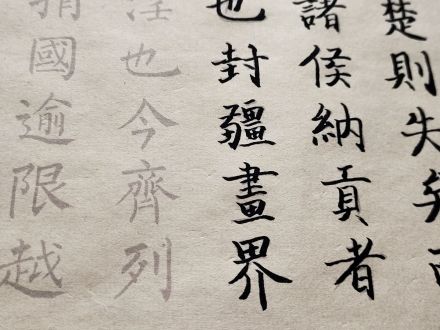 楚則失矣而
諸侯納貢者
也封疆畫界
淫也今齊列
捐國逾限越